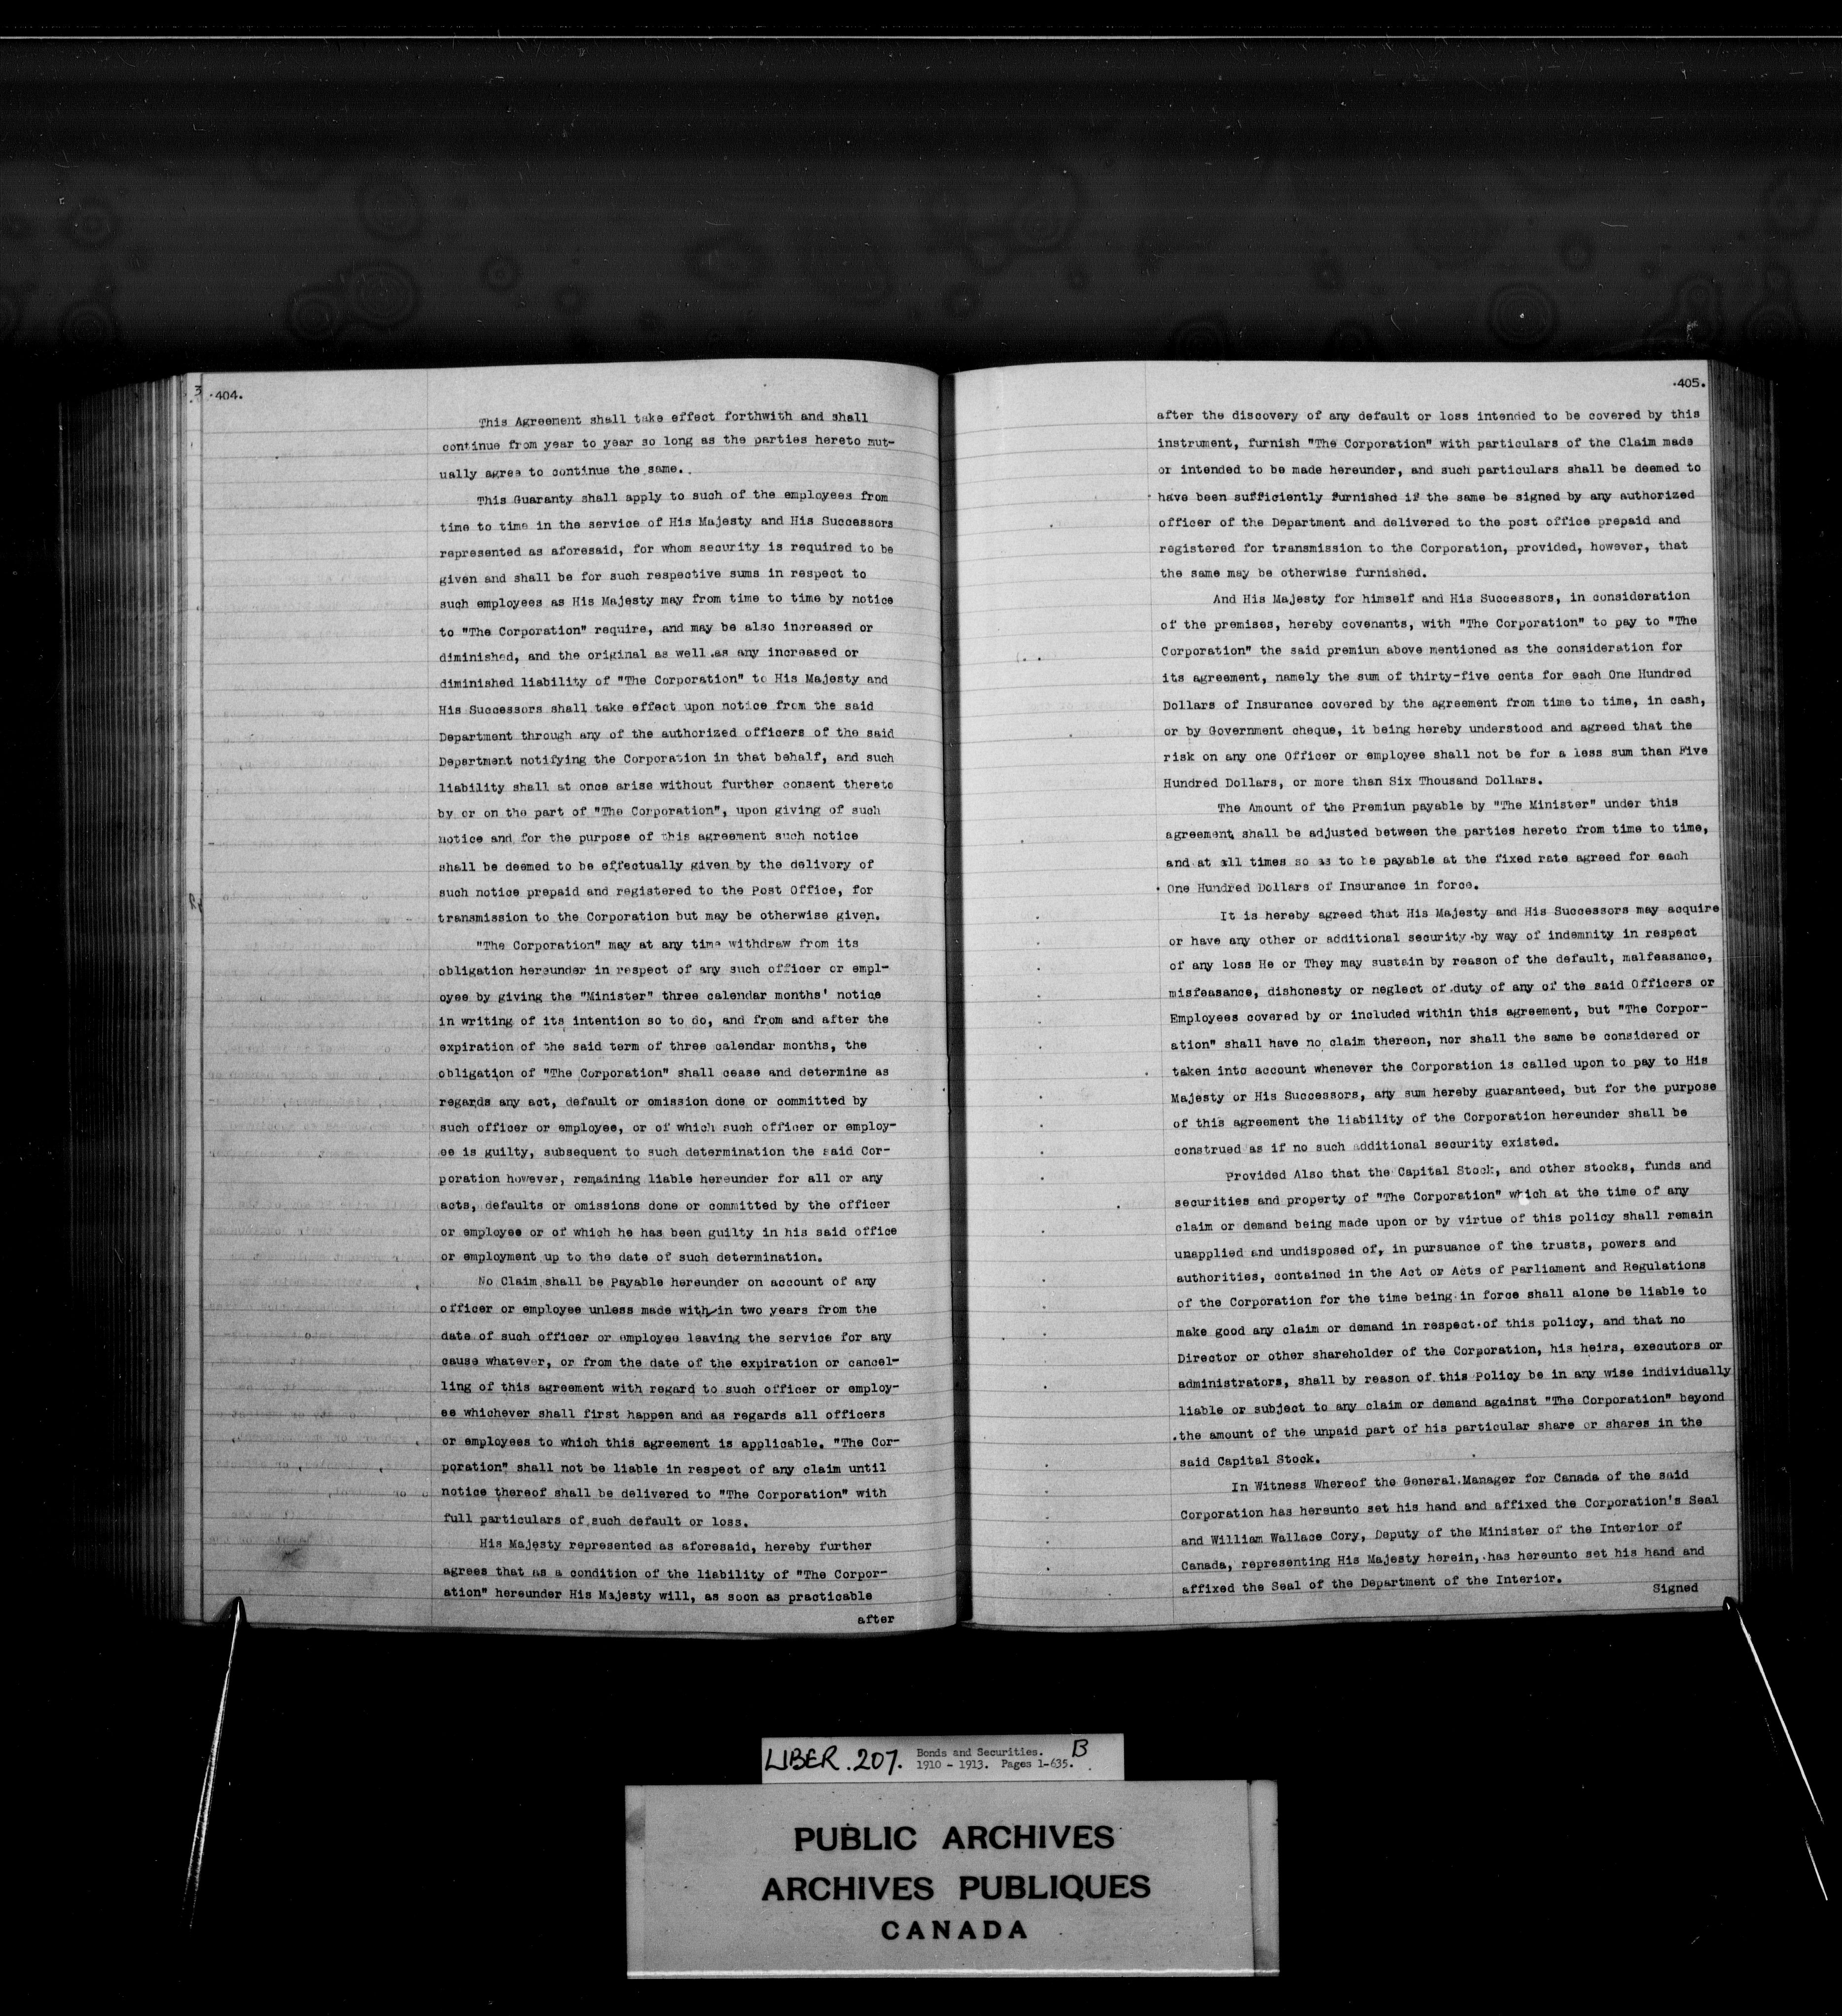 .404.
This Agreement shall take effect forthwith and shall
continue from year to year so long as the parties hereto mut-
ually agree to continue the same.
This Guaranty shall apply to such of the employees from
time to time in the service of His Majesty and His Successors
represented as aforesaid, for whom security is required to be
given and shall be for such respective sums in respect to
such employees as His Majesty may from time to time by notice
to "The Corporation" require, and may be also increased or
diminished, and the original as well as any increased or
diminished liability of "The Corporation" to His Majesty and
His Successors shall take effect upon notice from the said
Department through any of the authorized officers of the said
Department notifying the Corporation in that behalf, and such
liability shall at once arise without further consent thereto
by or on the part of "The Corporation", upon giving of such
notice and for the purpose of this agreement such notice
shall be deemed to be effectually given by the delivery of
such notice prepaid and registered to the Post Office, for
transmission to the Corporation but may be otherwise given.
"The Corporation" may at any time withdraw from its
obligation hereunder in respect of any such officer or empl-
oyee by giving the "Minister" three calendar months' notice
in writing of its intention so to do, and from and after the
expiration of the said term of three calendar months, the
obligation of "The Corporation" shall cease and determine as
regards any act, default or omission done or committed by
such officer or employee, or of which such officer or employ-
ee is guilty, subsequent to such determination the said Cor-
poration however, remaining liable hereunder for all or any
acts, defaults or omissions done or committed by the officer
or employee or of which he has been guilty in his said office
or employment up to the date of such determination.
No Claim shall be Payable hereunder on account of any
officer or employee unless made with-in two years from the
date of such officer or employee leaving the service for any
cause whatever, or from the date of the expiration or cancel-
ling of this agreement with regard to such officer or employ-
ee whichever shall first happen and as regards all officers
or employees to which this agreement is applicable. "The Cor-
poration" shall not be liable in respect of any claim until
notice thereof shall be delivered to "The Corporation" with
full particulars of such default or loss.
His Majesty represented as aforesaid, hereby further
agrees that as a condition of the liability of "The Corpor-
ation" hereunder His Majesty will, as soon as practicable
after
.405.
after the discovery of any default or loss intended to be covered by this
instrument, furnish "The Corporation" with particulars of the Claim made
or intended to be made hereunder, and such particulars shall be deemed to
have been sufficiently furnished if the same be signed by any authorized
officer of the Department and delivered to the post office prepaid and
registered for transmission to the Corporation, provided, however, that
the same may be otherwise furnished.
And His Majesty for himself and His Successors, in consideration
of the premises, hereby covenants, with "The Corporation" to pay to "The
Corporation" the said premiun above mentioned as the consideration for
its agreement, namely the sum of thirty-five cents for each One Hundred
Dollars of Insurance covered by the agreement from time to time, in cash,
or by Government cheque, it being hereby understood and agreed that the
risk on any one Officer or employee shall not be for a less sum than Five
Hundred Dollars, or more than Six Thousand Dollars.
The Amount of the Premiun payable by "The Minister" under this
agreement shall be adjusted between the parties hereto from time to time,
and at all times so as to be payable at the fixed rate agreed for each
One Hundred Dollars of Insurance in force.
It is hereby agreed that His Majesty and His Successors may acquire
or have any other or additional security by way of indemnity in respect
of any loss He or They may sustain by reason of the default, malfeasance,
misfeasance, dishonesty or neglect of duty of any of the said Officers or
Employees covered by or included within this agreement, but "The Corpor-
ation" shall have no claim thereon, nor shall the same be considered or
taken into account whenever the Corporation is called upon to pay to His
Majesty or His Successors, any sum hereby guaranteed, but for the purpose
of this agreement the liability of the Corporation hereunder shall be
construed as if no such additional security existed.
Provided Also that the Capital Stock, and other stocks, funds and
securities and property of "The Corporation" which at the time of any
claim or demand being made upon or by virtue of this policy shall remain
unapplied and undisposed of, in pursuance of the trusts, powers and
authorities, contained in the Act or Acts of Parliament and Regulations
of the Corporation for the time being in force shall alone be liable to
make good any claim or demand in respect of this policy, and that no
Director or other shareholder of the Corporation, his heirs, executors or
administrators, shall by reason of this Policy be in any wise individually
liable or subject to any claim or demand against "The Corporation" beyond
the amount of the unpaid part of his particular share or shares in the
said Capital Stock.
In Witness Whereof the General Manager for Canada of the said
Corporation has hereunto set his hand and affixed the Corporation's Seal
and William Wallace Cory, Deputy of the Minister of the Interior of
Canada, representing His Majesty herein, has hereunto set his hand and
affixed the Seal of the Department of the Interior.
Signed
LIBER. 207. Bonds and Securities. B
1910 - 1913. Pages 1-635.
PUBLIC ARCHIVES
ARCHIVES PUBLIQUES
CANADA